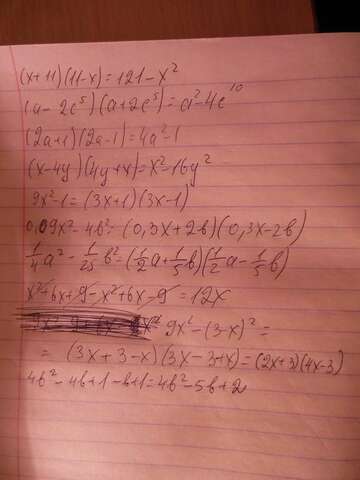 (x+11)(11-x)=121-x²
(a-2c⁵)(a+2c⁵)=a²-4c¹⁰
(2a+1)(2a-1)=4a²-1
(x-4y)(4y+x)=x²-16y²
9x²-1=(3x+1)(3x-1)
0,09x²-4b²=(0,3x+2b)(0,3x-2b)
1/4a²-1/25b²=(1/2a+1/5b)(1/2a-1/5b)
x²+6x+9-x²+6x-9=12x
9x²-(3-x)²=
=(3x+3-x)(3x-3+x)=(2x+3)(4x-3)
4b²-4b+1-b+1=4b²-5b+2